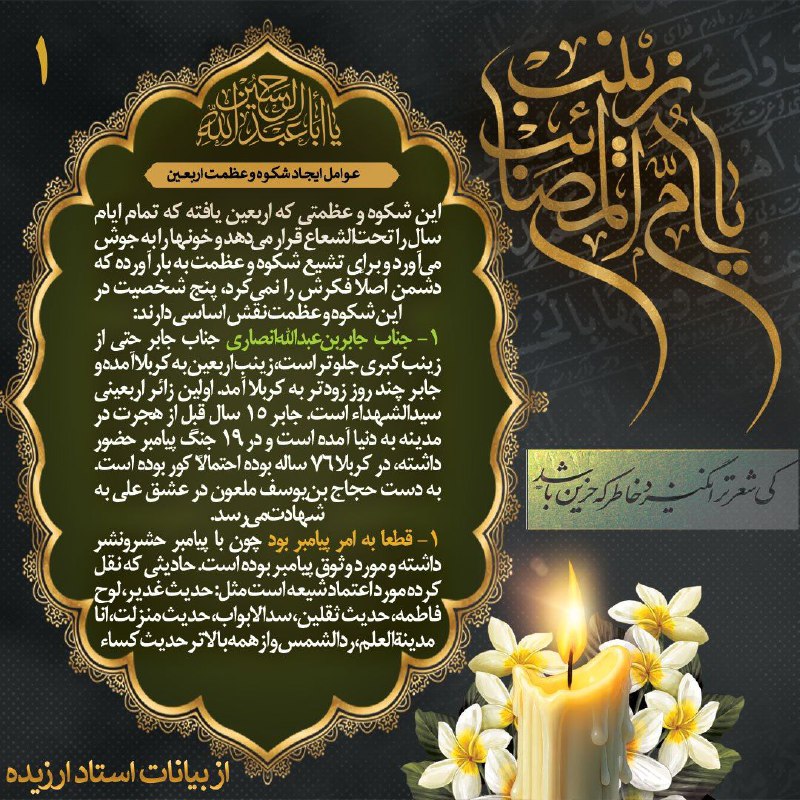 ۱
یا أباعبدالله الحسین
یا أمّ المصائب زینب
عوامل ایجاد شکوه و عظمت اربعین
این شکوه و عظمتی که اربعین یافته که تمام ایام
سال را تحت‌الشعاع قرار می‌دهد و خونها را به جوش
می‌آورد و برای تشیع شکوه و عظمت به بار آورده که
دشمن اصلا فکرش را نمی‌کرد، پنج شخصیت در
این شکوه و عظمت نقش اساسی دارند:
۱- جناب جابربن‌عبدالله‌انصاری جناب جابر حتی از
زینب کبری جلوتر است، زینب اربعین به کربلا آمده و
جابر چند روز زودتر به کربلا آمد. اولین زائر اربعینی
سیدالشهداء است. جابر ۱۵ سال قبل از هجرت در
مدینه به دنیا آمده است و در ۱۹ جنگ پیامبر حضور
داشته، در کربلا ۷۶ ساله بوده احتمالاً کور بوده است.
به دست حجاج بن‌یوسف ملعون در عشق علی به
شهادت می‌رسد.
۱- قطعاً به امر پیامبر بود چون با پیامبر حشرونشر
داشته و مورد وثوق پیامبر بوده است. حادیثی که نقل
کرده مورد اعتماد شیعه است مثل: حدیث غدیر، لوح
فاطمه، حدیث ثقلین، سدالابواب، حدیث منزلت، انا
مدینةالعلم، ردالشمس و از همه بالاتر حدیث کساء
کی شعر تر انگیزد خاطر که حزین باشد
از بیانات استاد ارزیده